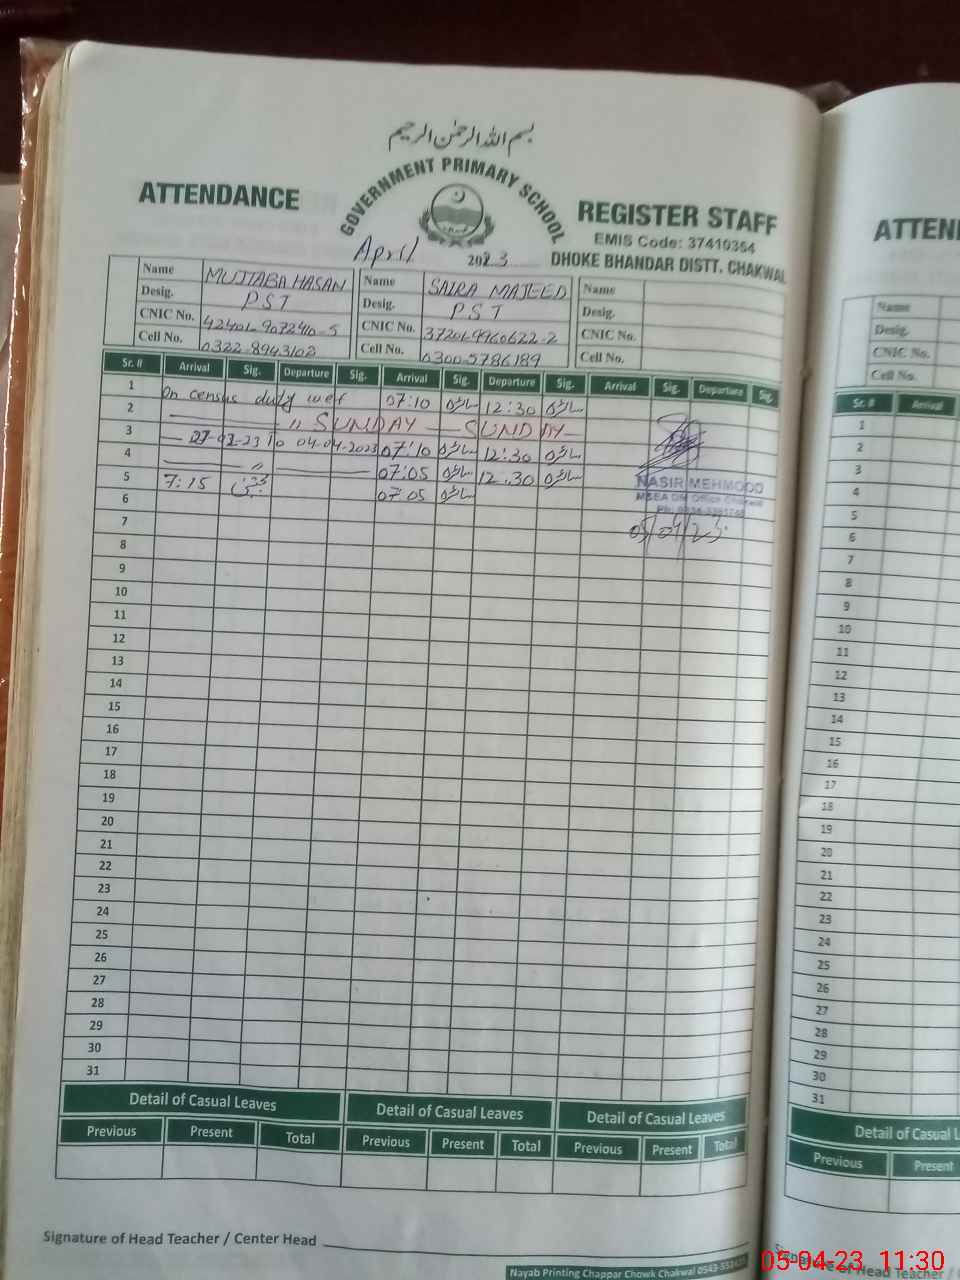 بسم الله الرحمن الرحيم
GOVERNMENT PRIMARY SCHOOL
ATTENDANCE
REGISTER STAFF
EMIS Code: 37410354
DHOKE BHANDAR DISTT. CHAKWAL
April 2023
Name MUJTABA HASAN Name SAIRA MAJEED Name
Desig. PST Desig. PST Desig.
CNIC No. CNIC No. 37201-9960622-2 CNIC No.
Cell No. 0322-8943102 Cell No. 0300-5786189 Cell No.
Sr. # Arrival Sig. Departure Sig. Arrival Sig. Departure Sig. Arrival Sig. Departure Sig.
1 On census duty wef 07:10 سائرہ 12:30 سائرہ
2 — " SUNDAY — SUNDAY —
3 — 27-03-23 to 04-04-2023 07:10 سائرہ 12:30 سائرہ
4 — " — 07:05 سائرہ 12.30 سائرہ
5 7:15 07:05 سائرہ
NASIR MEHMOOD
MSEA DM Office Chakwal
05/04/23
6
7
8
9
10
11
12
13
14
15
16
17
18
19
20
21
22
23
24
25
26
27
28
29
30
31
Detail of Casual Leaves Detail of Casual Leaves Detail of Casual Leaves
Previous Present Total Previous Present Total Previous Present Total
Signature of Head Teacher / Center Head
Nayab Printing Chappar Chowk Chakwal
ATTEN
Name
Desig.
CNIC No.
Cell No.
Sr. # Arrival
1
2
3
4
5
6
7
8
9
10
11
12
13
14
15
16
17
18
19
20
21
22
23
24
25
26
27
28
29
30
31
Detail of Casual L
Previous Present
Signature of Head Teacher
05-04-23 11:30